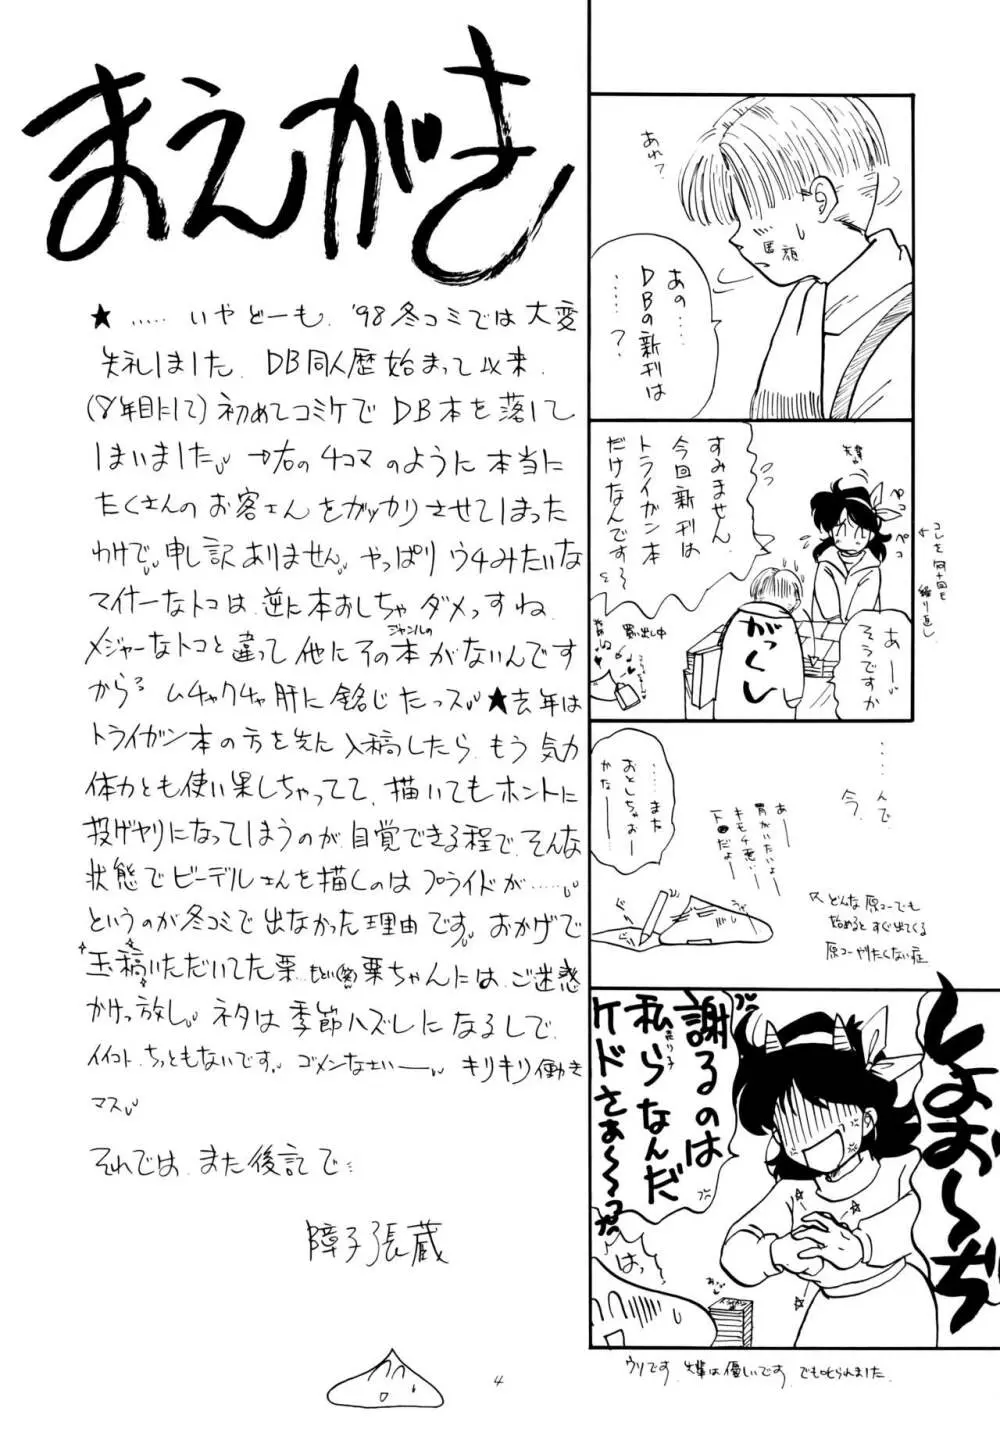 まえがき
★……いやどーも、'98冬コミでは大変
失礼しました。DB同人歴始まって以来、
(8年目にして)初めてコミケでDB本を落して
しまいました。→右の4コマのように本当に
たくさんのお客さんをガッカリさせてしまった
わけで。申し訳ありません。やっぱりウチみたいな
マイナーなトコは、逆に本おしちゃダメっすね
メジャーなトコと違って他にそのジャンルの本がないんです
から。ムチャクチャ肝に銘じたっス ★去年は
トライガン本の方を先に入稿したら、もう気力
体力とも使い果しちゃってて、描いてもホントに
投げヤリになってしまうのが自覚できる程で、そんな
状態でビーデルさんを描くのはプライドが……
というのが冬コミで出なかった理由です。おかげで
玉稿いただいてた栗、もとい(笑)粟ちゃんには、ご迷惑
かけっ放し。ネタは季節ハズレになるしで、
イイコト、ちっともないです。ゴメンなさいー。キリキリ働き
マス
それでは、また後記で…
障子張蔵
4
あれ?
あの……
DBの新刊は
……?
すみません、
今回新刊は
トライガン本
だけなんです〜
ペコ
ペコ
コレを何十回も
繰り返し
あー
そうですか
がっくし
買い出し中
……んで
今、
……また
おとしちゃおー
かなー
あー
胃がいたいよー
キモチ悪いー
どんな原コーでも
始めるとすぐ出てくる
原コーやりたくない症
しょお〜ぢ
謝るのは
私ら売り子なんだ
ケドさぁ〜〜っ?
はっ
ウソです。先輩は優しいです。でも叱られました。